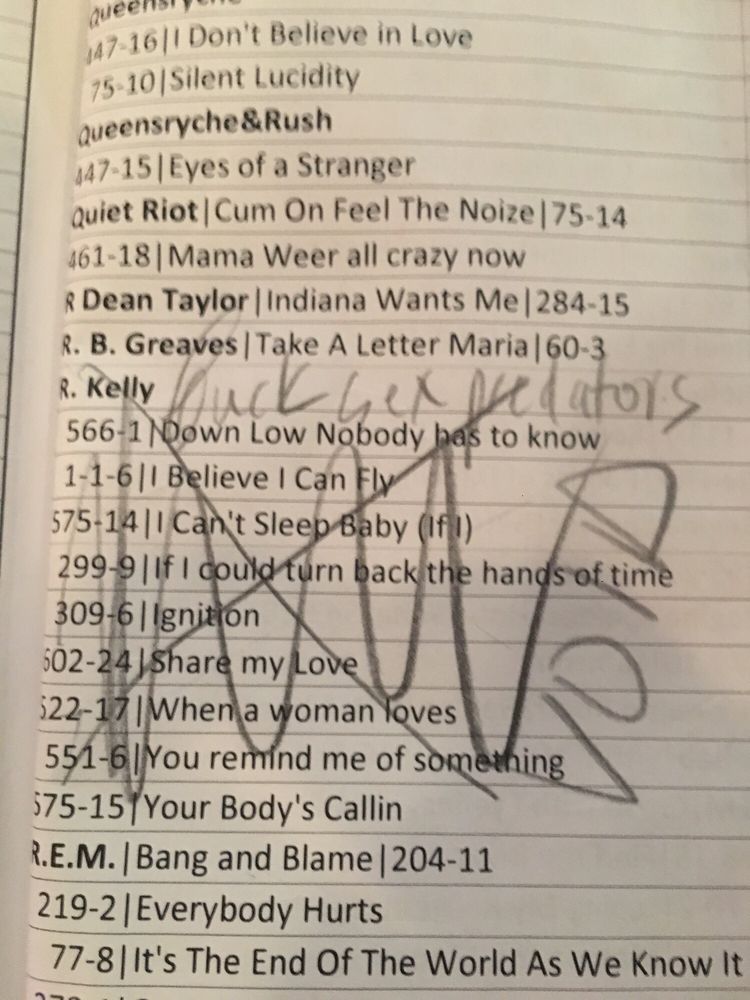 Queensryche
447-16|I Don't Believe in Love
75-10|Silent Lucidity
Queensryche&Rush
447-15|Eyes of a Stranger
Quiet Riot|Cum On Feel The Noize|75-14
461-18|Mama Weer all crazy now
R Dean Taylor|Indiana Wants Me|284-15
R. B. Greaves|Take A Letter Maria|60-3
R. Kelly Fuck sex predators
566-1|Down Low Nobody has to know
1-1-6|I Believe I Can Fly
575-14|I Can't Sleep Baby (If I)
299-9|If I could turn back the hands of time
309-6|Ignition
602-24|Share my Love
522-17|When a woman loves
551-6|You remind me of something
575-15|Your Body's Callin
VOID
R.E.M.|Bang and Blame|204-11
219-2|Everybody Hurts
77-8|It's The End Of The World As We Know It